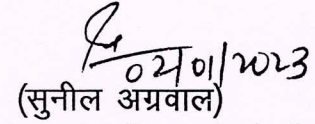 02/01/2023
(सुनील अग्रवाल)